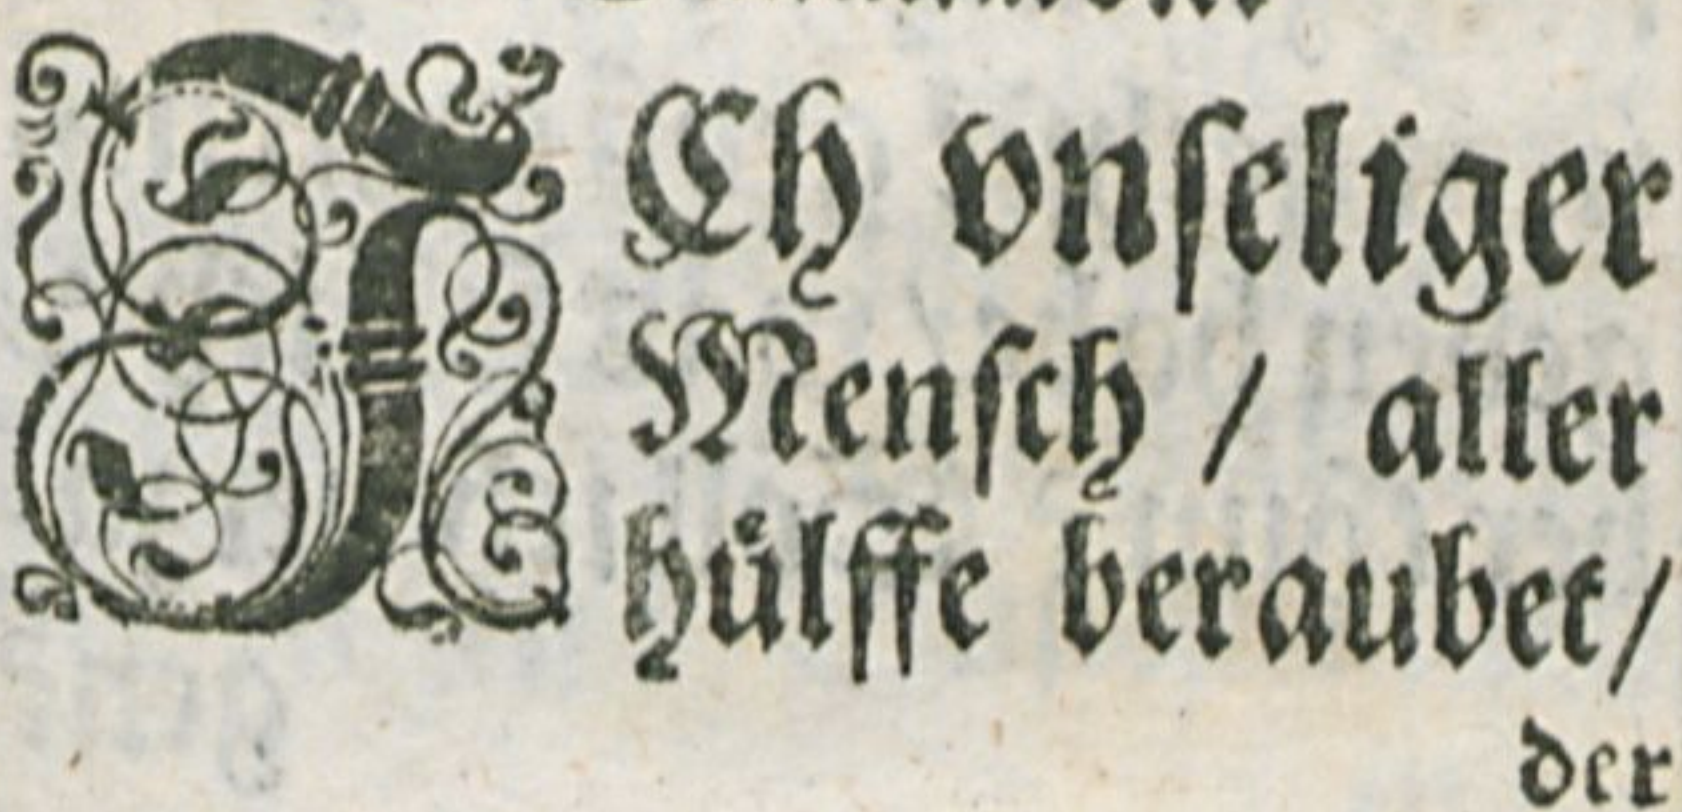 ICh vnſeliger
Menſch / aller
huͤlffe beraubet /
der